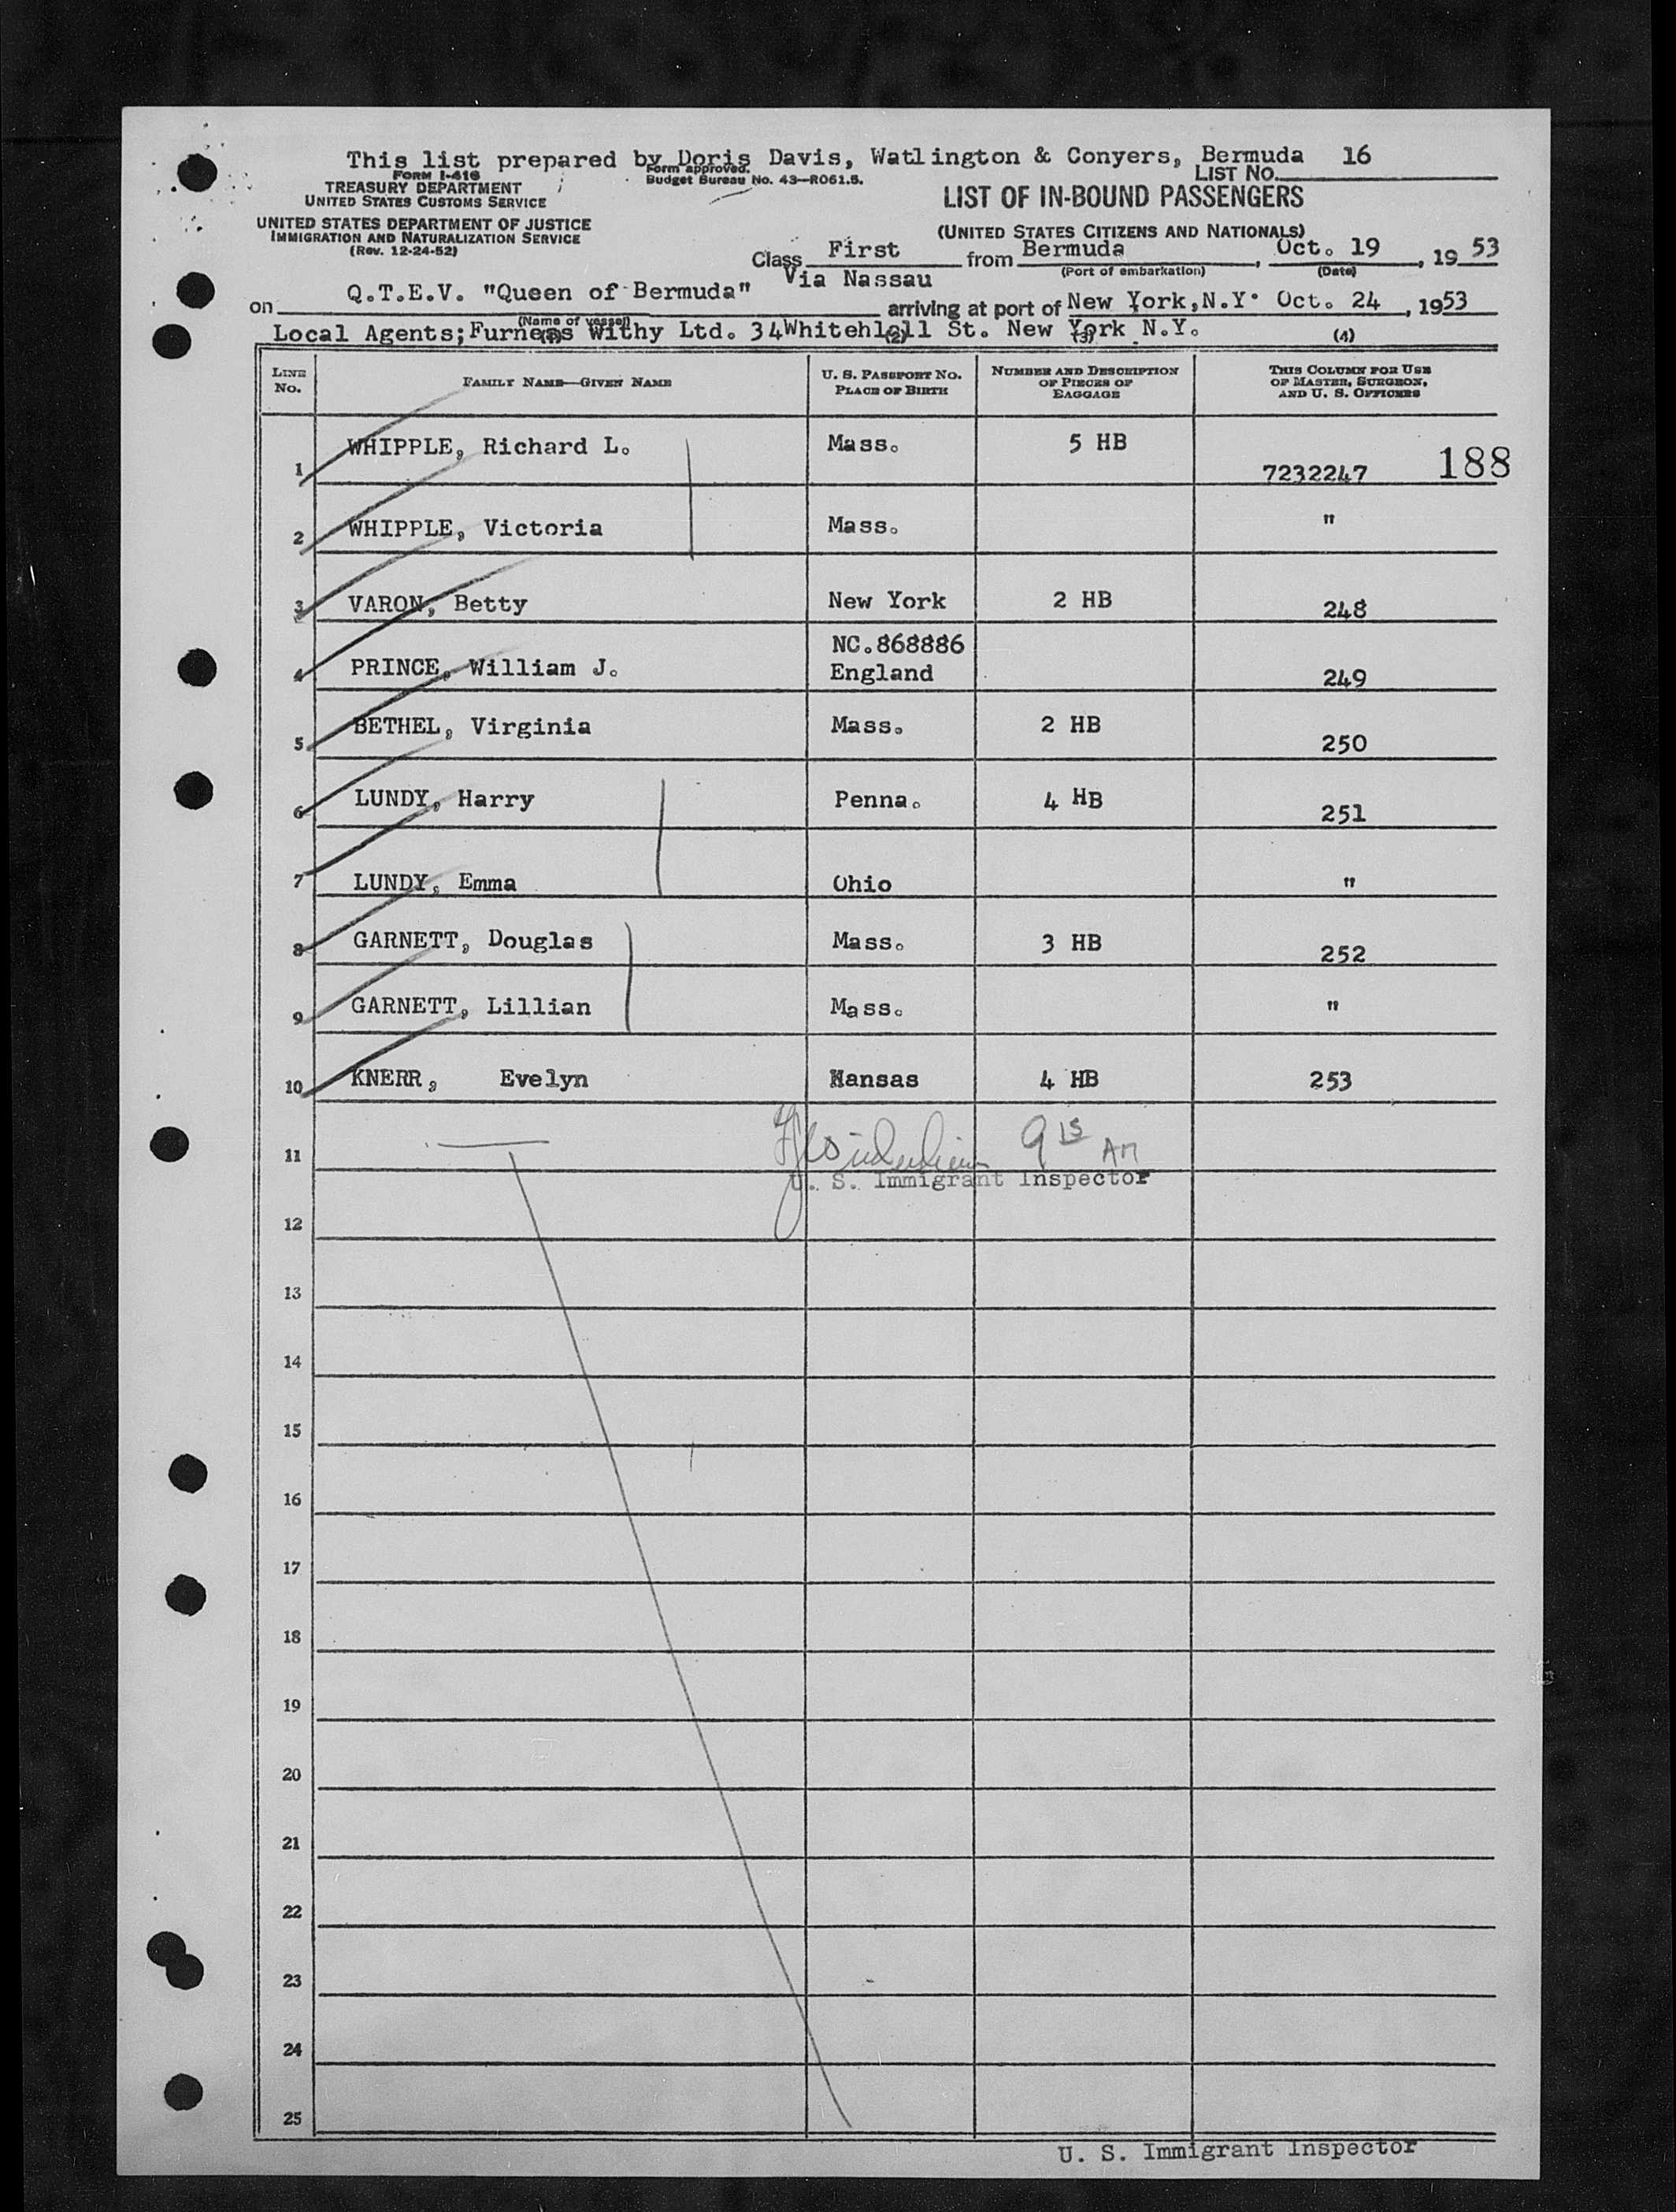 This list prepared by Doris Davis, Watlington & Conyers, Bermuda 16
FORM I-416
TREASURY DEPARTMENT
UNITED STATES CUSTOMS SERVICE
UNITED STATES DEPARTMENT OF JUSTICE
IMMIGRATION AND NATURALIZATION SERVICE
(Rev. 12-24-52)
Form approved.
Budget Bureau No. 43—R061.5.
LIST NO.
LIST OF IN-BOUND PASSENGERS
(UNITED STATES CITIZENS AND NATIONALS)
Class First from Bermuda, Oct. 19, 19 53
(Port of embarkation) (Date)
Via Nassau
on Q.T.E.V. "Queen of Bermuda" arriving at port of New York, N.Y. Oct. 24, 1953
(Name of vessel)
Local Agents; Furness Withy Ltd. 34 Whitehlall St. New York N.Y.
(1) (2) (3) (4)
LINE NO. FAMILY NAME—GIVEN NAME U. S. PASSPORT NO. PLACE OF BIRTH NUMBER AND DESCRIPTION OF PIECES OF BAGGAGE THIS COLUMN FOR USE OF MASTER, SURGEON, AND U. S. OFFICERS
1 WHIPPLE, Richard L. Mass. 5 HB 7232247 188
2 WHIPPLE, Victoria Mass. "
3 VARON, Betty New York 2 HB 248
4 PRINCE, William J. NC.868886 England 249
5 BETHEL, Virginia Mass. 2 HB 250
6 LUNDY, Harry Penna. 4 HB 251
7 LUNDY, Emma Ohio "
8 GARNETT, Douglas Mass. 3 HB 252
9 GARNETT, Lillian Mass. "
10 KNERR, Evelyn Kansas 4 HB 253
11 9 15 AM
U. S. Immigrant Inspector
12
13
14
15
16
17
18
19
20
21
22
23
24
25
U. S. Immigrant Inspector